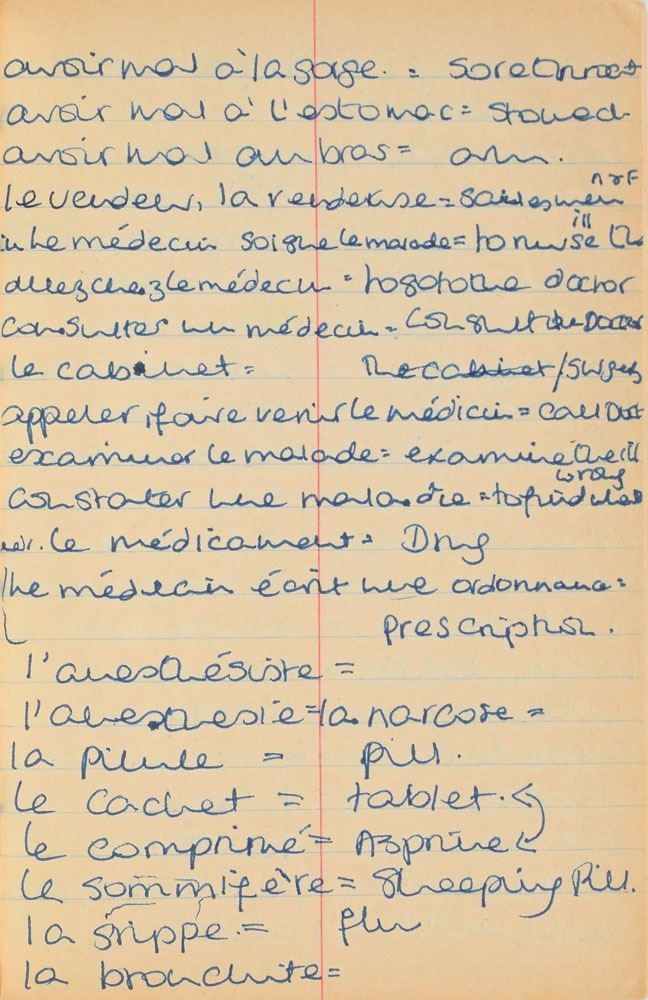 avoir mal à la gorge. = Sore throat
avoir mal à l'estomac = stomach
avoir mal au bras = arm.
le vendeur, la vendeuse = salesmen
le médecin soigne le malade = to nurse the ill
allez chez le médecin = to go to the doctor
consulter un médecin = Consult the Doctor
le cabinet = The cabinet/Surgery
appeler, faire venir le médicin = call Doct
examiner le malade = examine the ill
constater une maladie = to find what wrong
le médicament = Drug
le médecin écrit une ordonnance =
prescription.
l'anesthésiste =
l'anesthesie = la narcose =
la pilule = pill.
le cachet = tablet.
le comprimé = Asprine
le sommifère = Sleeping Pill.
la grippe = flu
la bronchite =